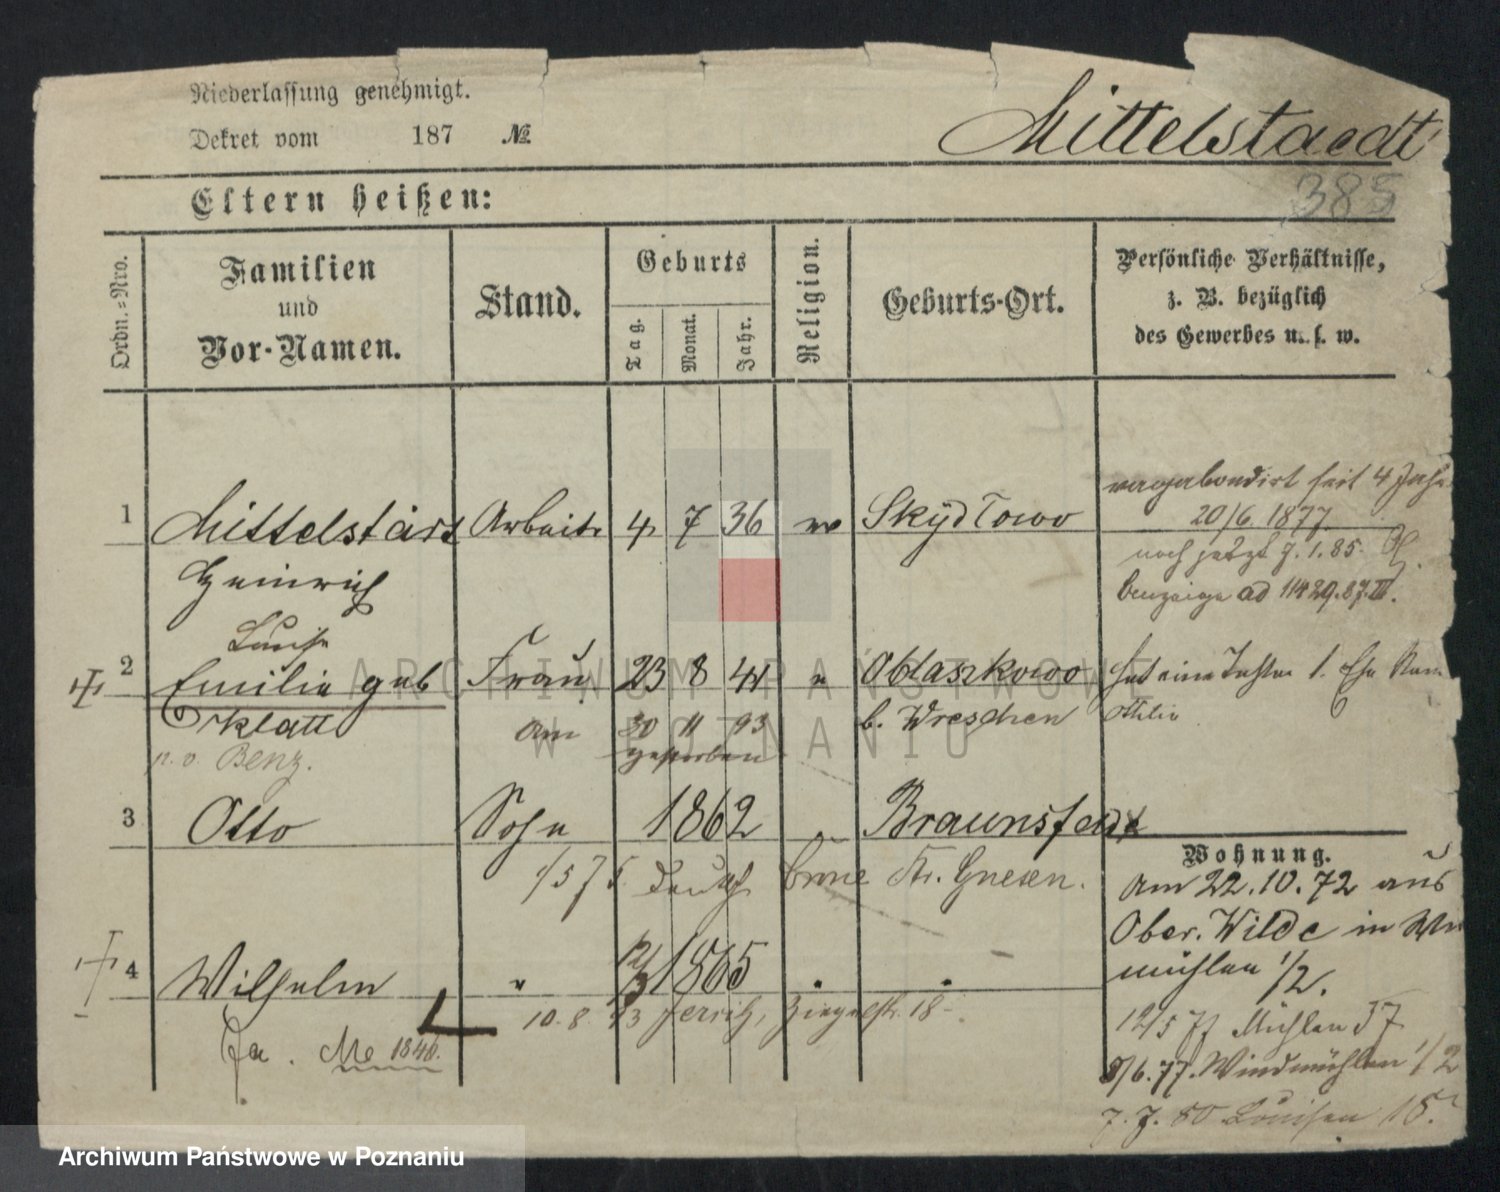 Niederlassung genehmigt.
Dekret vom 187 №
Mittelstaedt
385
Eltern heißen:
Ordn.=Nro.
Familien
und
Vor-Namen.
Stand.
Geburts
Tag.
Monat.
Jahr.
Religion.
Geburts-Ort.
Persönliche Verhältnisse,
z. B. bezüglich
des Gewerbes u. s. w.
vagabondirt seit 4 Jahr
20/6. 1877
noch jetzt 7. 1. 85.
1 Mittelstädt Arbeiter 4 7 36 ev Skydlowo
Heinrich
Louise
2 Emilie geb Frau 23 8 41 " Oblaszkowo hat eine Tochter 1. Ehe Nam
Ottilie
Klatt am 30 11 93 b. Wreschen
gestorben
p. v. Benz.
3 Otto Sohn 1862 " Braunsfeld
Wohnung.
1/5 75. Deutsch Crone Kr. Gnesen.
am 22. 10. 72 aus
Ober. Wilde in
mühlen 1/2.
4 Wilhelm " 1865 " "
10. 8. 93 Jersitz, Ziegelstr. 18
12/5 77 Mühlen 37
8/6. 77. Windmühlen 1/2
7. 7. 80 Louisen 15.
Me 1848.
ARCHIWUM PAŃSTWOWE
W POZNANIU
Archiwum Państwowe w Poznaniu